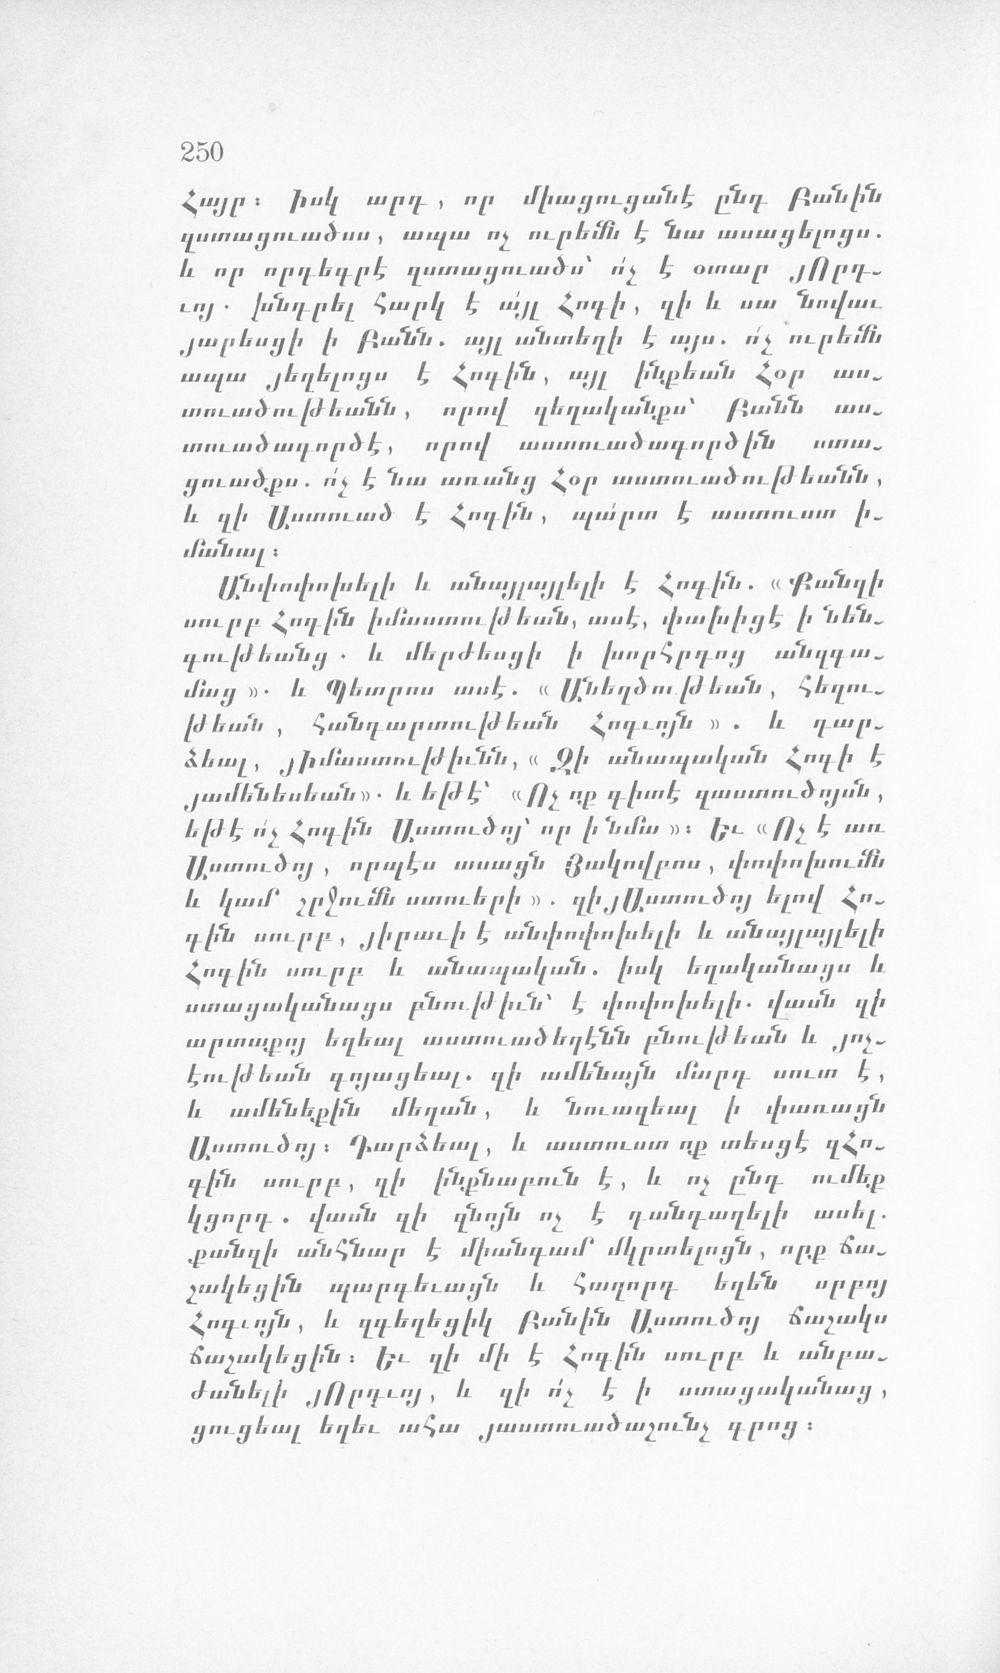 250
Հայր։ Իսկ արդ, որ միացուցանէ ընդ Բանին
զստացուածսս, ապա ոչ ուրեմն է նա ասացելոցս.
և որ որդեգրէ զստացուածս՝ ո՛չ է օտար յՈրդ֊
ւոյ. խնդրել հարկ է ա՛յլ Հոգի, զի և սա նովաւ
յարեսցի ի Բանն. այլ անտեղի է այս. ո՛չ ուրեմն
ապա յեղելոցս է Հոգին, այլ ինքեան Հօր աս֊
տուածութեանն, որով զեղականքս՝ Բանն աս֊
տուածագործէ, որով աստուածագործին ստա֊
ցուածքս. ո՛չ է նա առանց Հօր աստուածութեանն,
և զի Աստուած է Հոգին, պա՛րտ է աստուստ ի֊
մանալ։
Անփոփոխելի և անայլայլելի է Հոգին. «Քանզի
սուրբ Հոգին իմաստութեան, ասէ, փախիցէ ի նեն֊
գութեանց. և մերժեսցի ի խորհրդոց անզգա֊
մաց». և Պետրոս ասէ. «Անեղծութեան, հեզու֊
թեան, հանդարտութեան Հոգւոյն». և դար֊
ձեալ, յԻմաստութիւնն, «Զի անապական Հոգի է
յամենեսեան». և եթէ՝ «Ոչ ոք գիտէ զաստուծոյսն,
եթէ ո՛չ Հոգին Աստուծոյ՝ որ ի նմա»։ Եւ «Ոչ է առ
Աստուծոյ, որպէս ասացն Յակովբոս, փոփոխումն
և կամ շրջումն ստուերի». զի յԱստուծոյ ելով Հո֊
գին սուրբ, յիրաւի է անփոփոխելի և անայլայլելի
Հոգին սուրբ և անապական. իսկ եղականացս և
ստացականացս բնութիւն՝ է փոփոխելի. վասն զի՛
արտաքոյ եղեալ աստուածեղէնն բնութեան և յոչ֊
էութեան գոյացեալ. զի ամենայն մարդ սուտ է,
և ամենեքին մեղան, և նուազեալ ի փառացն
Աստուծոյ։ Դարձեալ, և աստուստ ոք տեսցէ զՀո֊
գին սուրբ, զի ինքնաբուն է, և ոչ ընդ ումեք
կցորդ. վասն զի զնոյն ոչ է դանդաղելի ասել.
քանզի անհնար է միանգամ մկրտելոցն, որք ճա֊
շակեցին պարգեւացն և հաղորդ եղեն սրբոյ
Հոգւոյն, և զգեղեցիկ Բանին Աստուծոյ ճաշակս
ճաշակեցին։ Եւ զի մի է Հոգին սուրբ և անբա֊
ժանելի յՈրդւոյ, և զի ո՛չ է ի ստացականաց,
ցուցեալ եղեւ ահա յաստուածաշունչ գրոց։